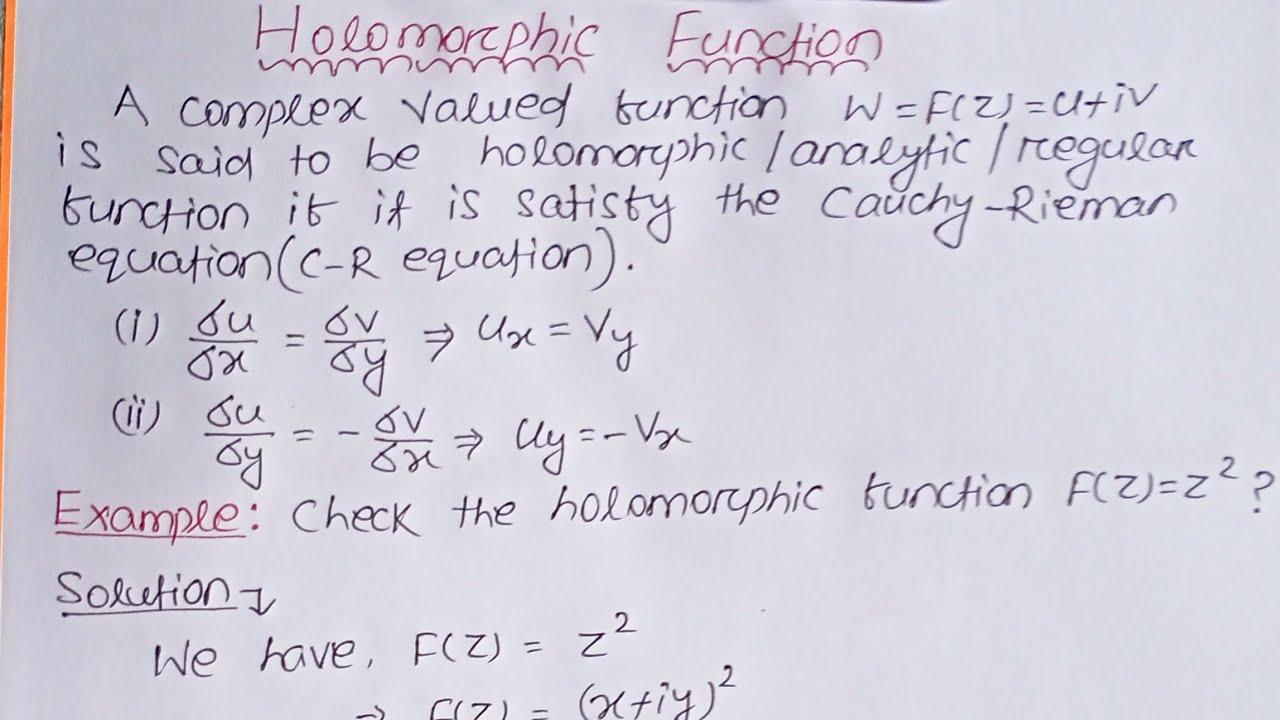 Holomorphic Function
A complex valued function W = F(Z) = U+iV
is said to be holomorphic/analytic/regular
function if it is satisfy the Cauchy-Rieman
equation (C-R equation).
(i) δu/δx = δv/δy ⇒ Ux = Vy
(ii) δu/δy = -δv/δx ⇒ Uy = -Vx
Example: Check the holomorphic function F(Z)=Z²?
Solution→
We have, F(Z) = Z²
⇒ F(Z) = (x+iy)²